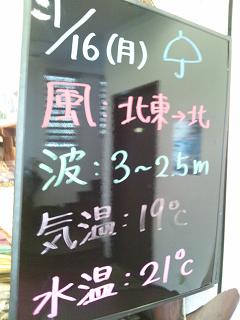 1/16(月)
風:北東→北
波:3~2.5m
気温:19℃
水温:21℃